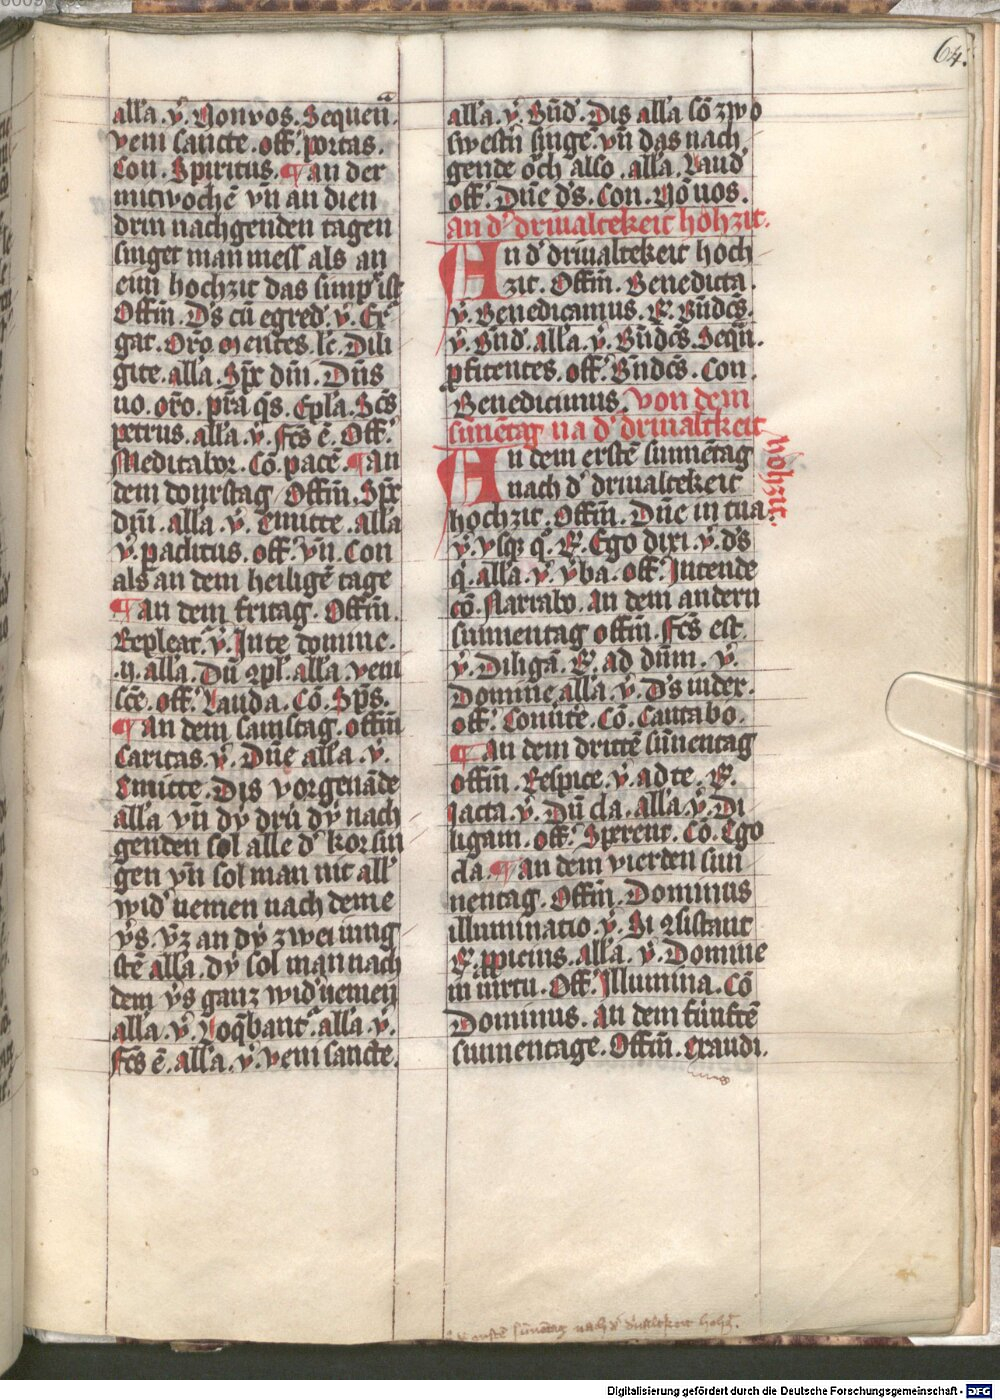 64.
alla. v̉. Non vos. Sequen̄.
veni sancte. off̉. portas.
Con. Spiritus. ¶ an der
mitwochē vn̄ an dien
drin nachgenden tagen
singet man mess als an
eim hochzit das simp̉ ist
Offm̄. Ds̄ cū egred̉. v̉. Ex
gat. Or̄o mentes. le. Dili
gite. alla. Spc̄ dm̄. Dn̄s
uo. or̄o. pr̄a qs̄. Epl̄a. Sc̄s
petrus. alla. v̉. Fc̄s ē. Off̉.
Meditabor. Cō. pacē. ¶ an
dem donrstag Offm̄. Spc̄
dm̄. alla. v̉. Emitte. alla
v̉. paclitus. off̉. vn̄. Con
als an dem heiligē tage
¶ an dem fritag. Offm̄.
Repleat. v̉. In te domine.
alla. Dū ꝯpl̄. alla. veni
sc̄e. off̉. Lauda. Cō. Sps̄.
¶ an dem samstag. offm̄
Caritas. v̉. Dn̄e alla. v̉.
Emitte. Dis vorgenāde
alla vn̄ dy̍ drü dy̍ nach
genden sol alle d̉ kor sin
gen vn̄ sol man nit all̉
wid̉ nemen nach deme
v̉s. v̄z an dy̍ zwei iung
stē alla. dy̍ sol man nach
dem v̉s ganz wid̉ nemen
alla. v̉. Loq̄bant̉ alla. v̉.
Fc̄s ē. alla. v̉. veni sancte.
alla. v̉. Bn̄d̉. Dis alla sō zwo
swestn̉ singē. vn̄ das nach
gende ŏch also. alla. Laud̉
off̉. Dn̄e ds̄. Con. Nō uos.
an d̉ driualtekeit hohzit.
An d̉ driualtekeit hoch
zit. Offm̄. Benedicta.
v̉. Benedicamus. R̉. Bn̄dcs̄.
v̉. Bn̄d̉. alla. v̉. Bn̄dcs̄. Seqn̄.
ꝓfitentes. off̉. Bn̄dcs̄. Con.
Benedicimus. von dem
sūnētag na d̉ driualtkeit
hohzit.
An dem erstē sunnētag
nach d̉ driualtekeit
hochzit. Offm̄. Dn̄e in tua.
v̉. vsq̄ q̊. R̉. Ego dixi. v̉. ds̄
q̊. alla. v̉. v̉ba. off̉. Intende
cō. Narrabo. An dem andern
sunnentag offm̄. Fc̄s est
v̉. Diligā. R̉. ad dn̄m. v̉.
Domine alla. v̉. Ds̄ iudex.
off̉. Conute. Cō. Cantabo.
¶ an dem drittē sūnentag
offm̄. Respice. v̉. ad te. R̉.
Iacta. v̉. Dū cla. alla. v̉. Di
ligam. off̉. Sperent. Cō. Ego
cla. ¶ an dem vierden sun
nentag. Offm̄. Dominus
illuminatio. v̉. Si ꝯsistant
R̉. ꝓpicius. alla. v̉. Domine
in uirtu. Off̉. Illumina. Cō
Dominus. an dem fünftē
sunnentage. Offm̄. Exaudi.
erstē sūnētag nach d̉ driualtkeit hohz̄.
Digitalisierung gefördert durch die Deutsche Forschungsgemeinschaft - DFG